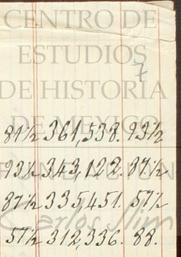 CENTRO DE
ESTUDIOS
7
DE HISTORIA
DE MEXICO
81½ 361,538. 93½
93½ 343,128. 87½
87½ 335,451. 57½
Carlos Slim
57½ 312,336. 88.